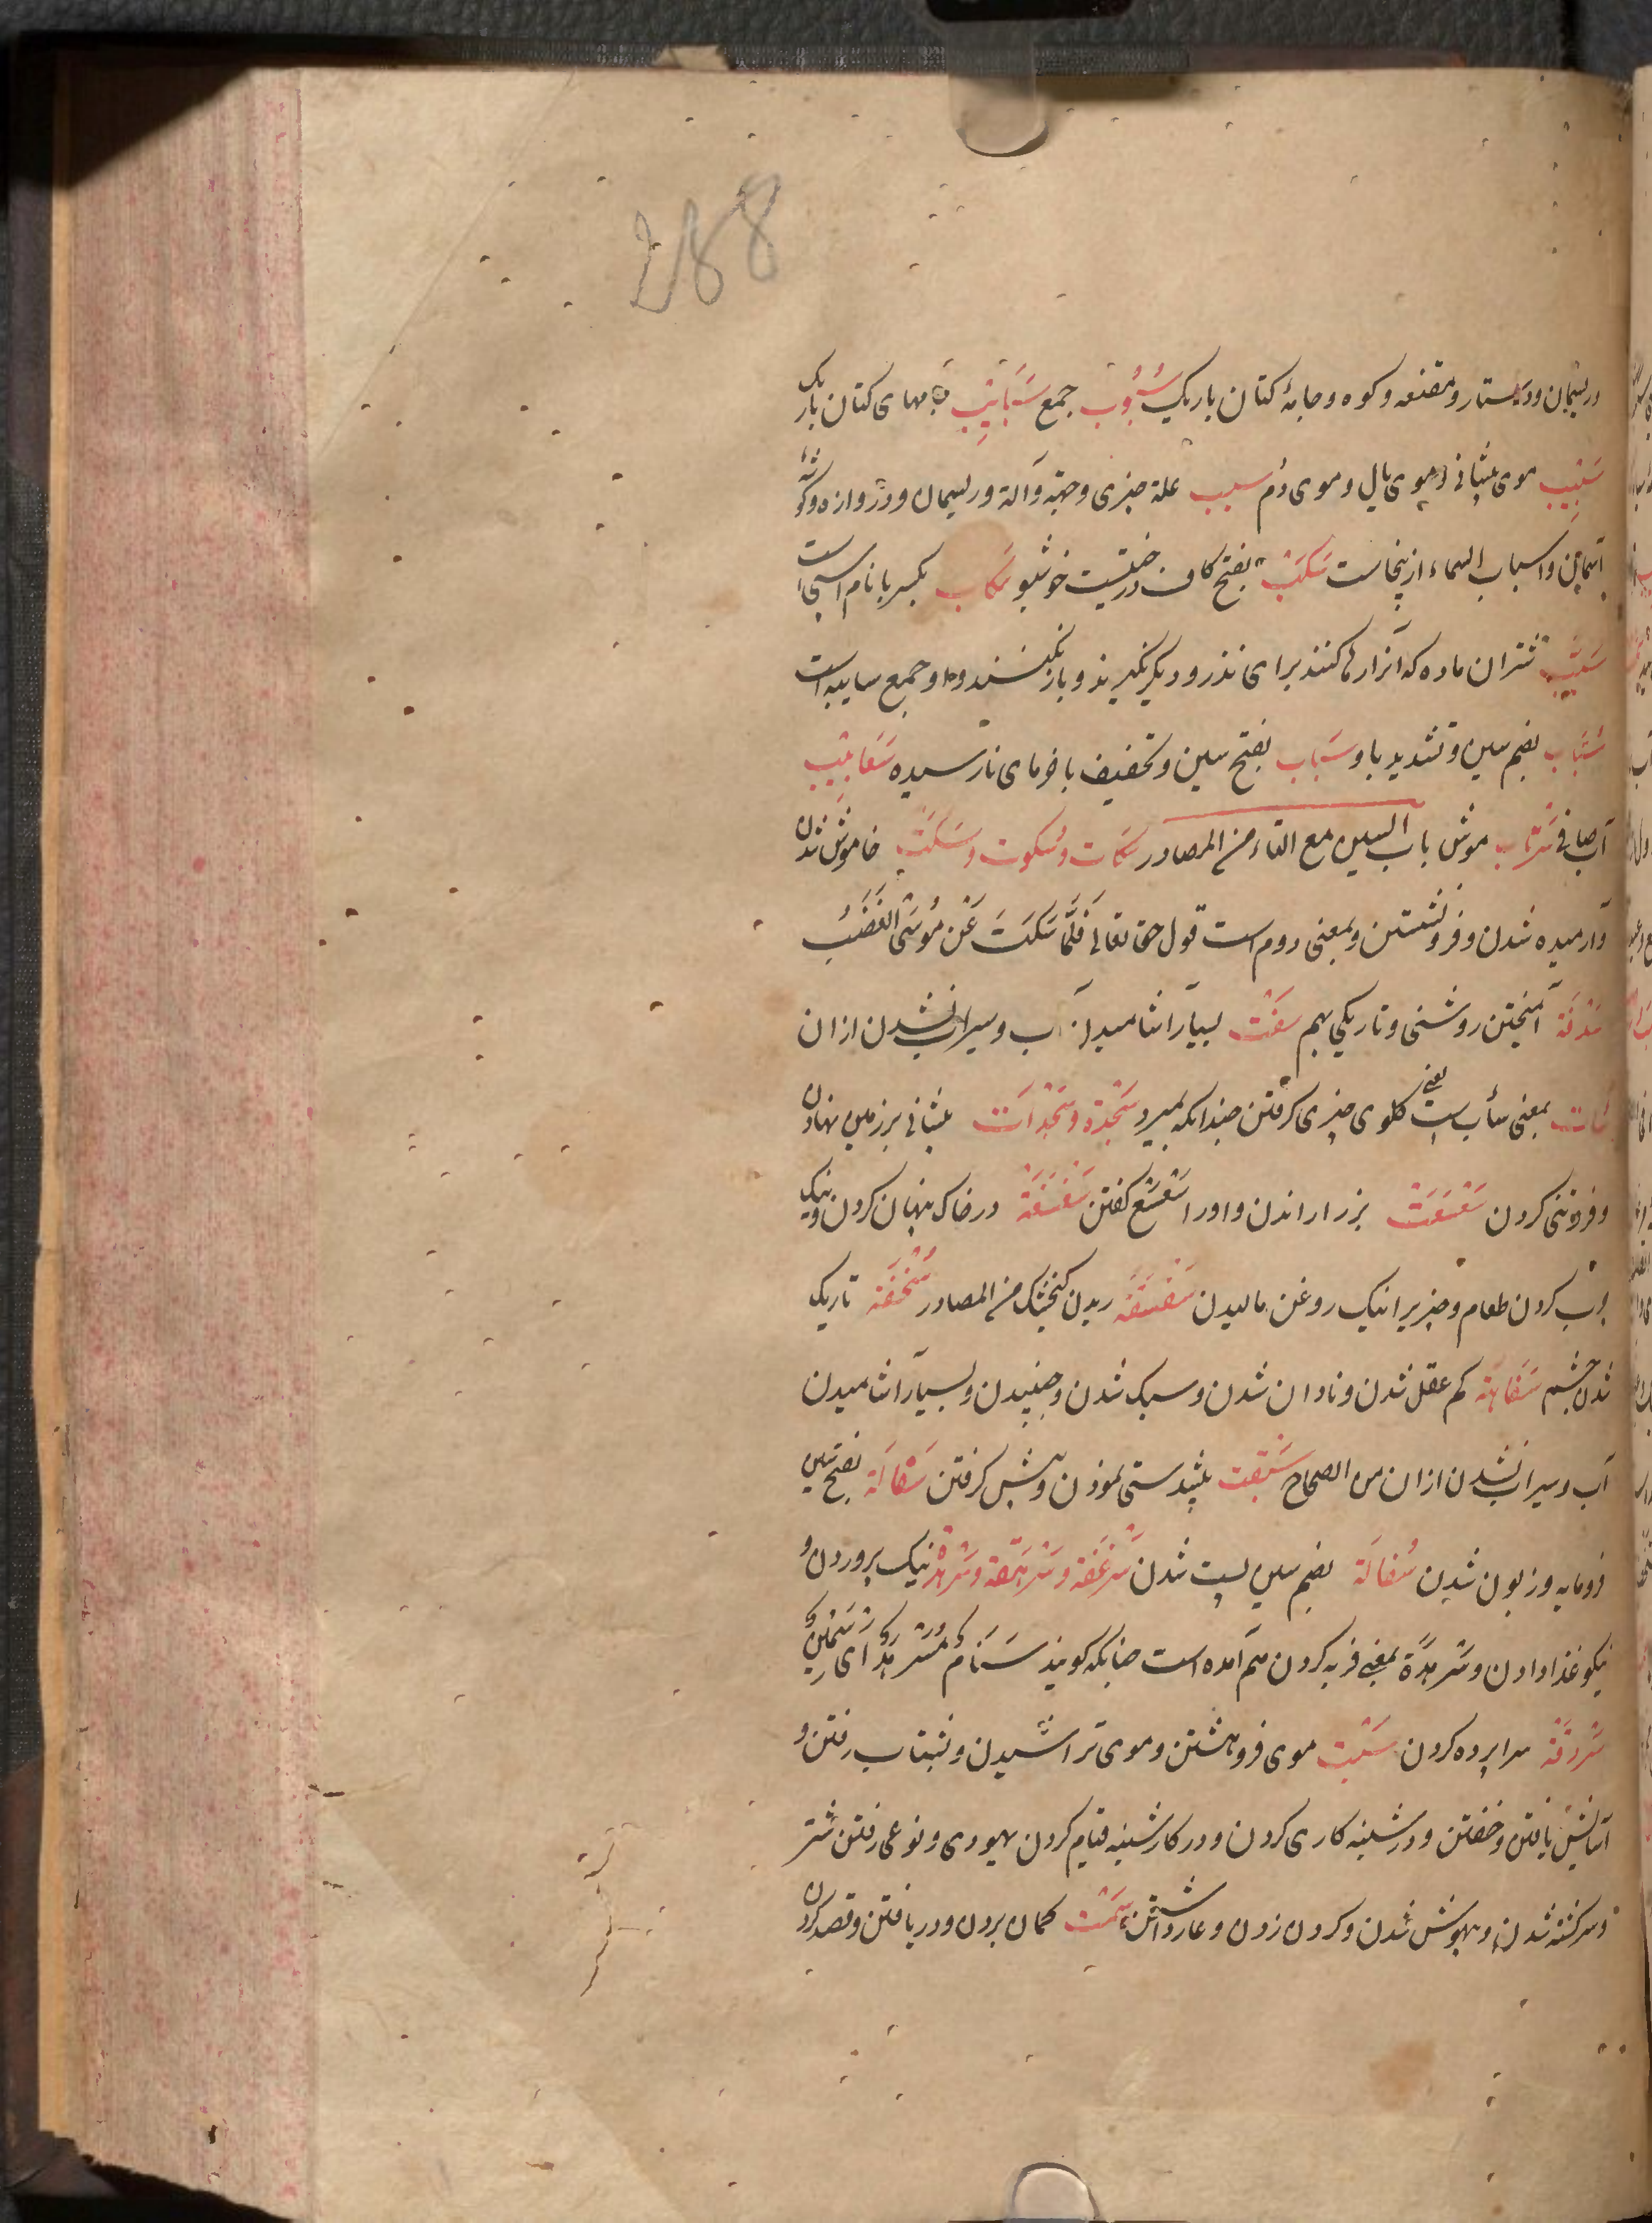 288
وریسمان ودستار ومقنعه وکوه وجامهٔ کتان باریک سُبُوب جمع سَبَائِب جامهای کتان باریک
سَبِیب موی پیشانی وموی یال وموی دُم سبب علة چیزی وجهة وآلة وریسمان ودروازه وگوشهٔ
آسمان واسباب السماء ازینجاست سَکَبْ بفتح کاف درختیست خوشبو سَکاب بکسر با نام اسپی است
سُیَّب شتران ماده که آنرا رها کنند برای نذر ودیگر نگیرند وبار نکنند واو جمع سایبه است
سُیَّاب بضم سین وتشدید یا وسَیَاب بفتح سین وتخفیف یا خرمای نارسیده سَعَابِیب
آب صافی سَرَاب موش باب السین مع التاء من المصادر سُکات وسُکوت وسَکْت خاموش شدن
وآرمیده شدن وفرونشستن وبمعنی دوم است قول حق تعالی فَلَمَّا سَکَتَ عَنْ مُوسَی الْغَضَبُ
سُدْفَة آمیختن روشنی وتاریکی بهم سَفْت بسیار آشامیدن آب وسیراب نشدن ازان
سَأت بمعنی سأب است یعنی گلوی چیزی گرفتن چندانکه بمیرد سَجْدَة وسَجْدَات پیشانی بر زمین نهادن
وفروتنی کردن سَعْسَعَت بز را راندن واو را سَعْسَعْ گفتن سَغْسَغَة در خاک پنهان کردن ونیک
چرب کردن طعام وچیزیرا نیک روغن مالیدن سَقْسَقَة ریدن گنجشک من المصادر سُخْفَة تاریک
شدن چشم سَفَاهَة کم عقل شدن ونادان شدن وسبک شدن وجنبیدن وبسیار آشامیدن
آب وسیراب نشدن ازان من الصحاح سَبَقَت پیشدستی نمودن وپیش گرفتن سَفَالَة بفتح سین
فرومایه وزبون شدن سُفَالَة بضم سین پست شدن سَرْعَفَة وسَرْهَفَة وسَرْهَدَة نیک پروردن و
نیکو غذا دادن وسَرْهَدَة بمعنی فربه کردن هم آمده است چنانکه گویند سَنَامٌ مُسَرْهَدٌ ای سَمِینٌ
سَرْدَقَة سراپرده کردن سَبْت موی فروهشتن وموی تراشیدن وبشتاب رفتن و
آسایش یافتن وخفتن ودر شنبه کاری کردن ودر کار شنبه قیام کردن یهودی ونوعی رفتن شتر
وسرگشته شدن وبیهوش شدن وگردن زدن وعار داشتن سَمْت گمان بردن ودریافتن وقصد کردن